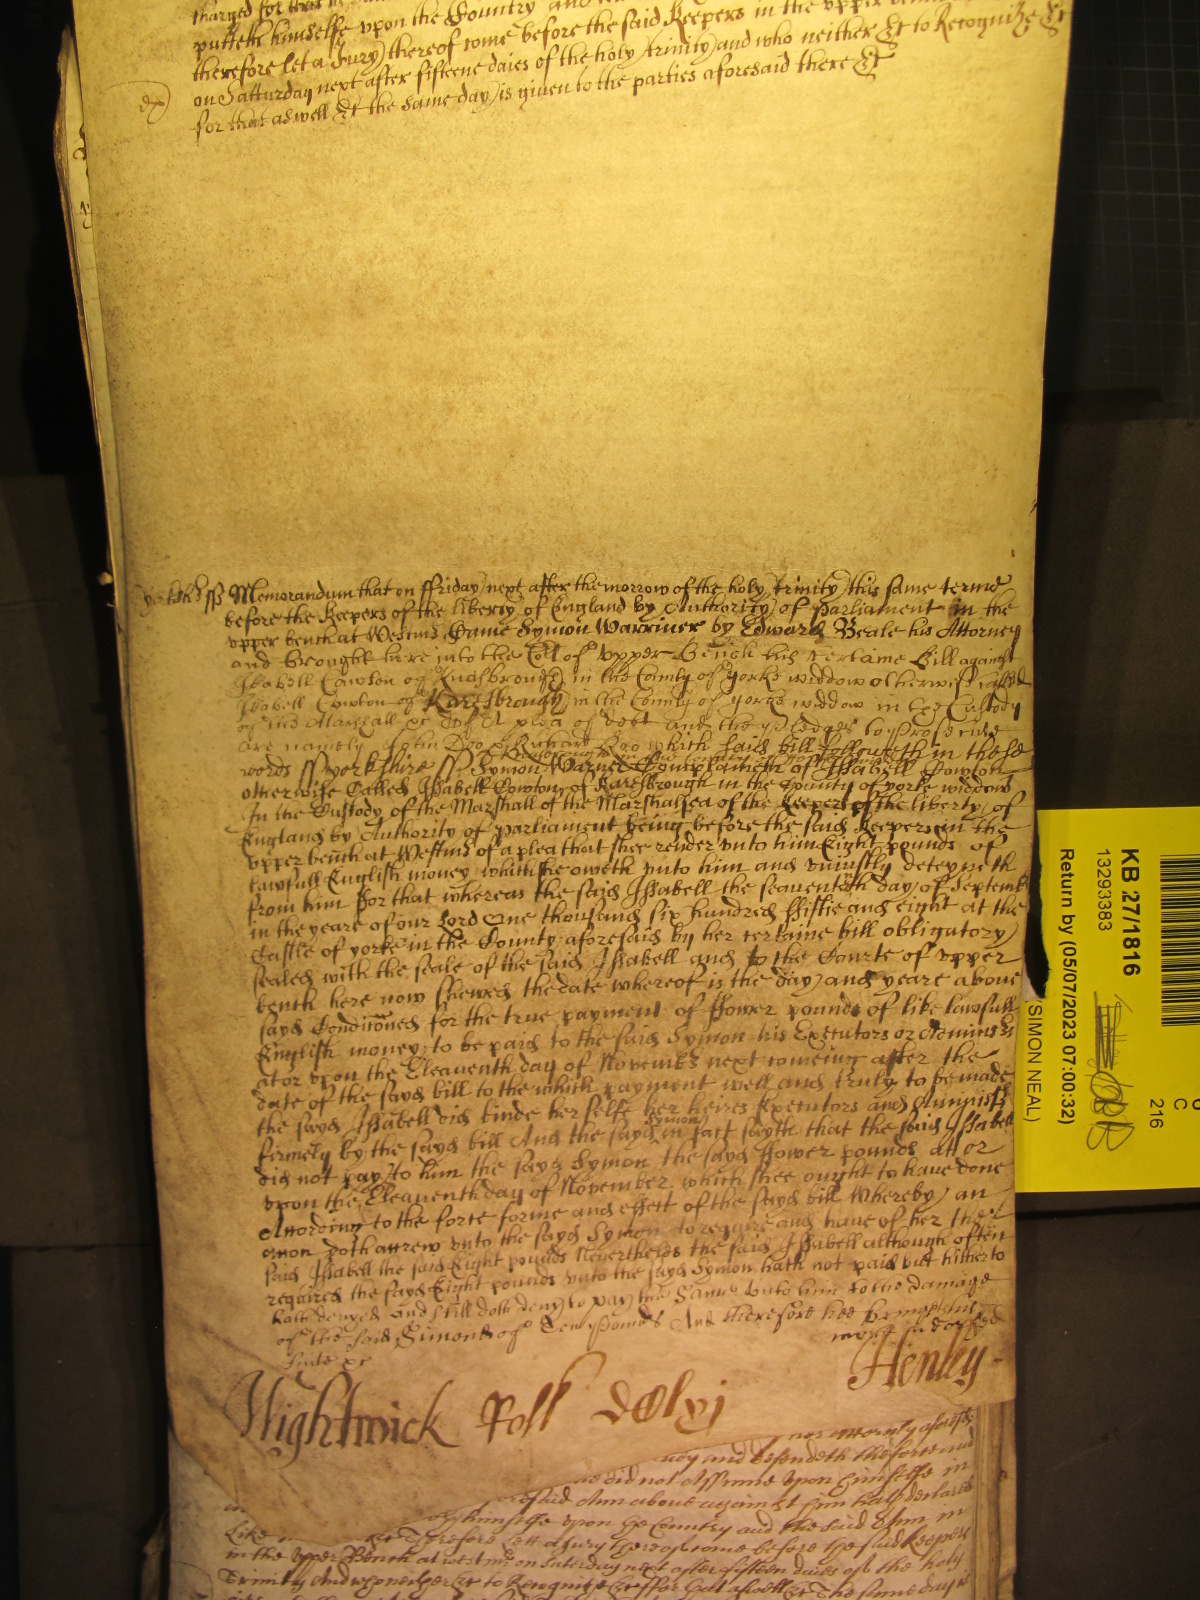 putteth himselfe upon the Country and
therefore let a Jury thereof come before the said Keepers in the upper
on Satturday next after fifteene daies of the holy trinity and who neither &c to Recognize &c
for that aswell &c the same day is given to the parties aforesaid there &c
ss Memorandum that on ffriday next after the morrow of the holy trinity this same terme
before the Keepers of the liberty of England by Authority of Parliament in the
upper bench at Westmr Came Symon Warriner by Edward Beale his Attorney
and brought here into the Cort of Upper Bench his certaine Bill against
Isabell Cowton of Knasbrough in the County of yorke widdow otherwise called
Isabell Cowton of Karesbrough in the County of yorke widdow in the Custody
of the Marshall &c of A plea of debt and the pledges to prosecute
are namely John Doo & Richard Roo which said bill followeth in these
words ss yorkshire ss Symon Warner Complaineth of Issabell Cowton
otherwise Called Issabell Cowton of Karesbrough in the County of yorke widdow
In the Custody of the Marshall of the Marshalsea of the Keepers of the liberty of
England by Authority of parliament being before the said Keepers in the
upper bench at Westmr of a plea that shee render unto him Eight pounds of
lawfull English money which she oweth unto him and uniustly deteyneth
from him for that whereas the said Issabell the seaventeth day of Septemb
in the yeare of our Lord One thousand six hundred ffiftie and eight at the
Castle of yorke in the County aforesaid by her certaine bill obligatory
sealed with the seale of the said Issabell and to the Courte of upper
bench here now shewed the date whereof is the day and yeare above
sayd Conditioned for the true payment of ffower pounds of like lawfull
English money to be paid to the said Symon his Executors or Adminis
ator upon the Eleaventh day of Novembr next comeing after the
date of the sayd bill to the which payment well and truly to be made
the sayd Issabell did binde her selfe her heires Executors and
firmely by the sayd bill And the sayd Symon in fact sayth that the said Issabell
did not pay to him the sayd Symon the sayd ffower pounds att or
upon the Eleaventh day of November which shee ought to have done
According to the force forme and effect of the sayd bill Whereby an
accion doth accrew unto the sayd Symon to require and have of her the
said Issabell the said Eight pounds Nevertheles the said Issabell although often
required the sayd Eight pounds unto the sayd Symon hath not paid but hitherto
hath denyed and still doth deny to pay the Same unto him to the damage
of the said Simond of Tenn pounds And therefore hee bringeth his
suite &c
Henley
Hightwick Roll
nor attorny aforesd
and defendeth the force and
did not Assume upon himselfe in
said Ann above against him hath declared
himselfe upon the Country and the said Ann in
Like Therefore lett a Jury thereof come before the said Keepers
in the Upper Bench at westmr on Saturday next after fifteen daies of the holy
Trinity And who neither &c to Recognize &c ffor that aswell &c The same day is
KB 27/1816
13293383
Return by (05/07/2023 07:00:32)
(SIMON NEAL)
C
216